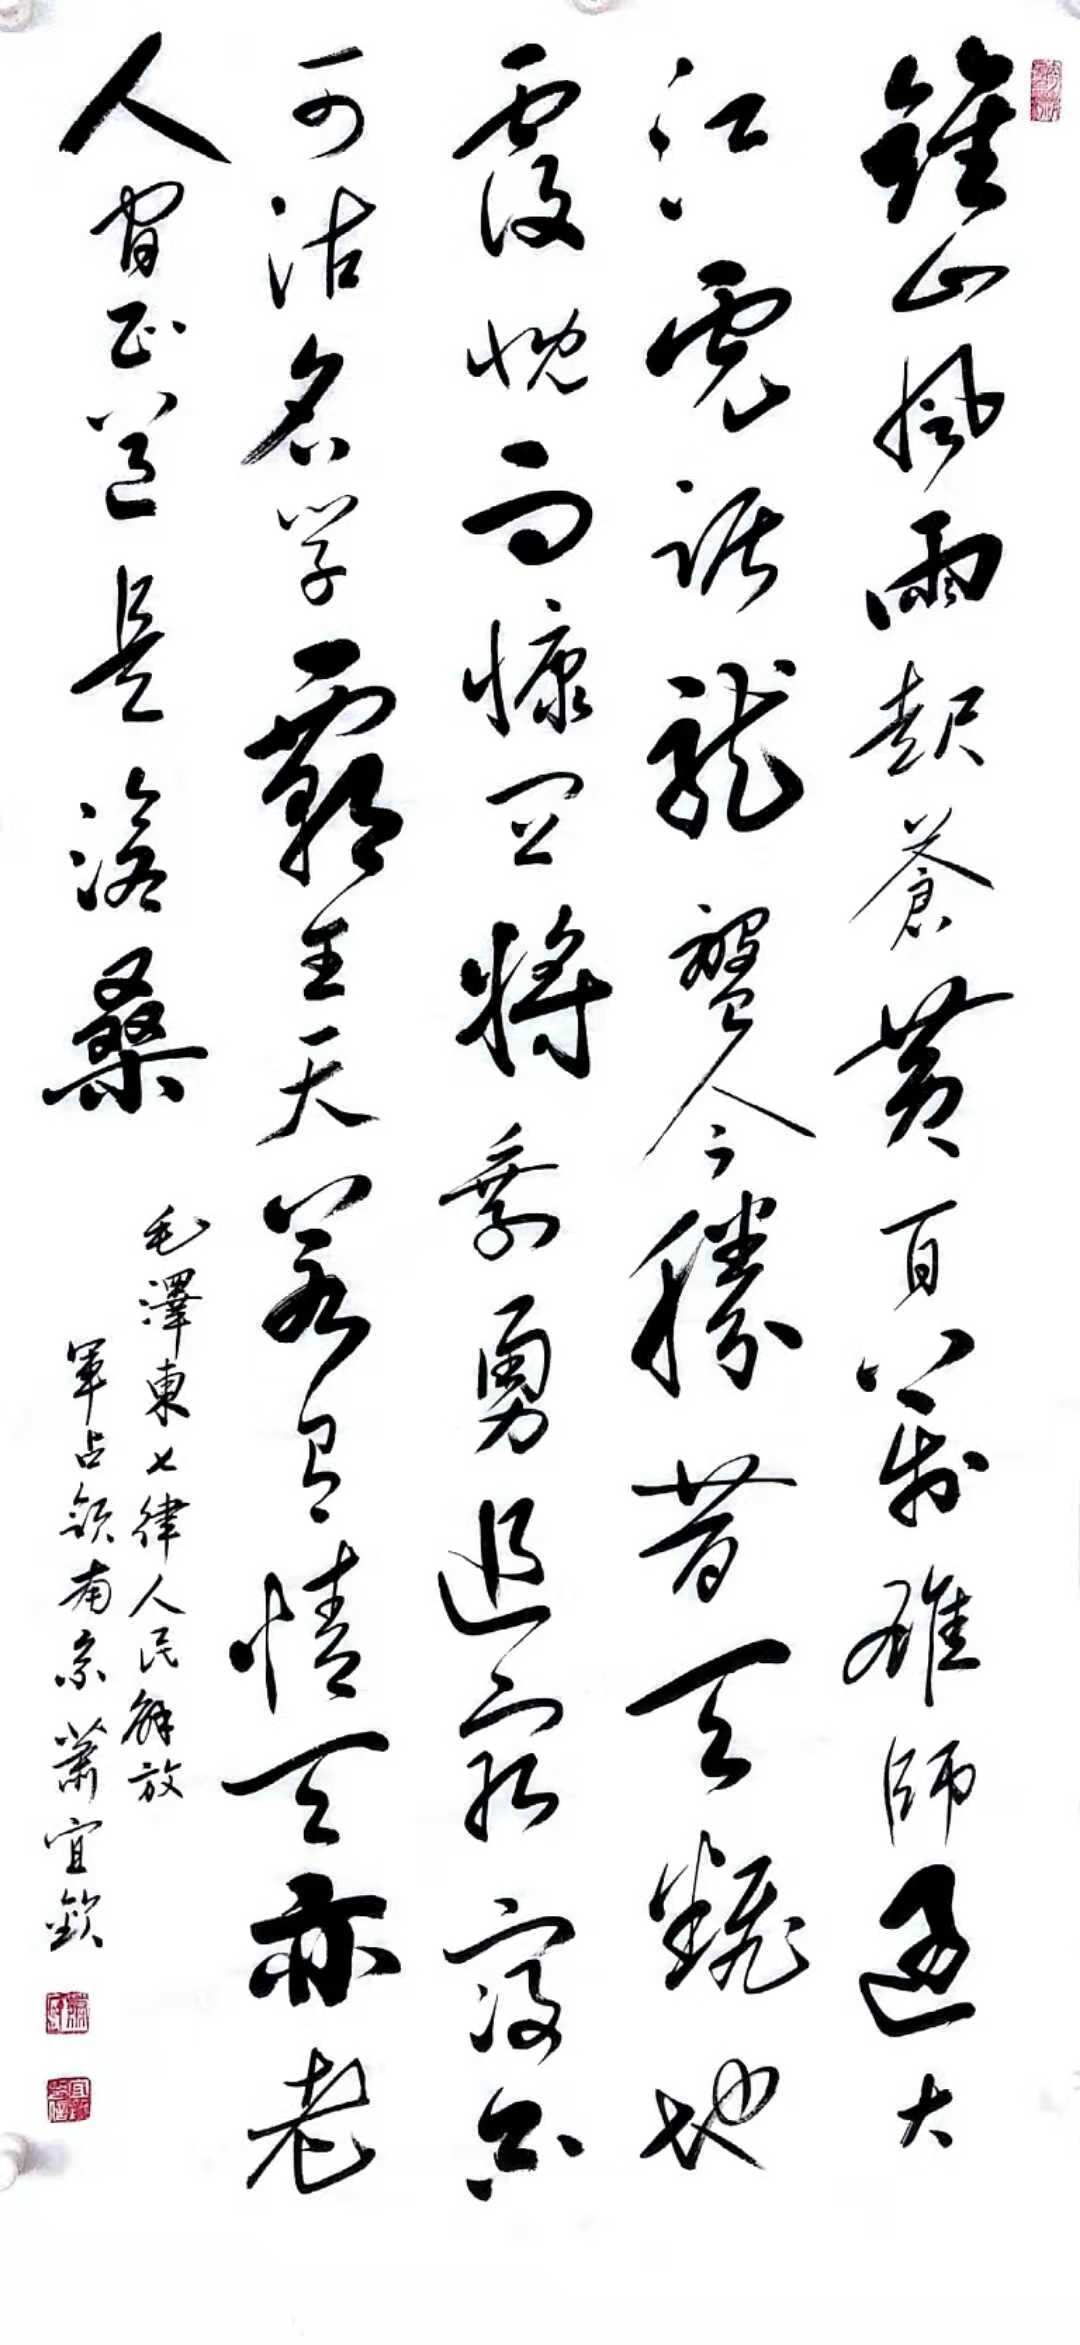 鍾山風雨起蒼黃百万雄师過大
江虎踞龙盤今勝昔天翻地
覆慨而慷宜将剩勇追窮寇不
可沽名学霸王天若有情天亦老
人间正道是滄桑
毛澤東七律人民解放
軍占领南京蕭宜欽